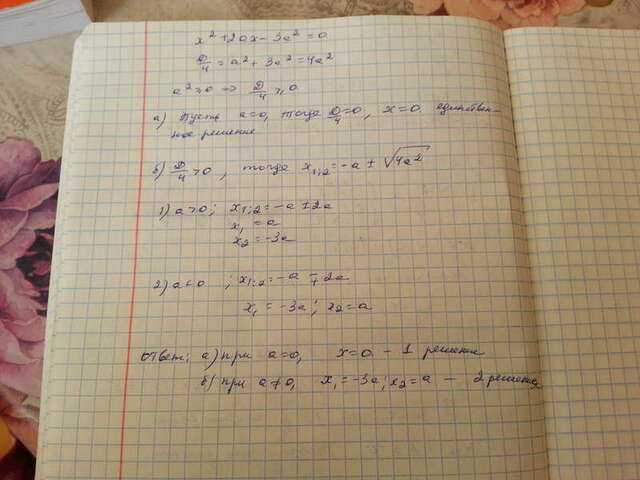 x² + 2ax - 3a² = 0
D/4 = a² + 3a² = 4a²
a² ≥ 0 ⇒ D/4 ≥ 0
а) Пусть a=0, тогда D/4 = 0, x=0 единствен-
ное решение
б) D/4 > 0, тогда x₁,₂ = -a ± √4a²
1) a>0; x₁,₂ = -a ± 2a
x₁ = a
x₂ = -3a
2) a<0; x₁,₂ = -a ∓ 2a
x₁ = -3a; x₂ = a
Ответ: а) при a=0, x=0 - 1 решение
б) при a≠0, x₁=-3a; x₂=a - 2 решения